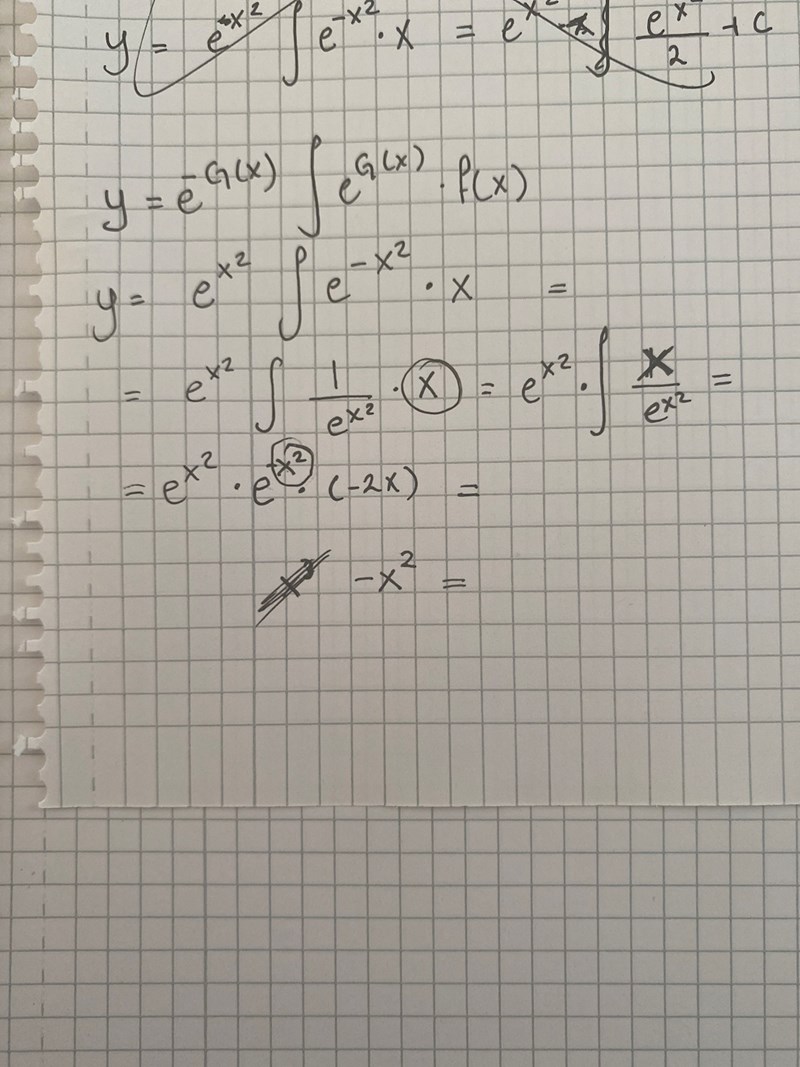 y = e^{-x^2} ∫ e^{-x^2} · x = e^{x^2} ∫ e^x/2 + C
y = e^{-G(x)} ∫ e^{G(x)} · f(x)
y = e^{x^2} ∫ e^{-x^2} · x =
= e^{x^2} ∫ 1/e^{x^2} · x = e^{x^2} · ∫ x/e^{x^2} =
= e^{x^2} · e^{-x^2} · (-2x) =
-x^2 =